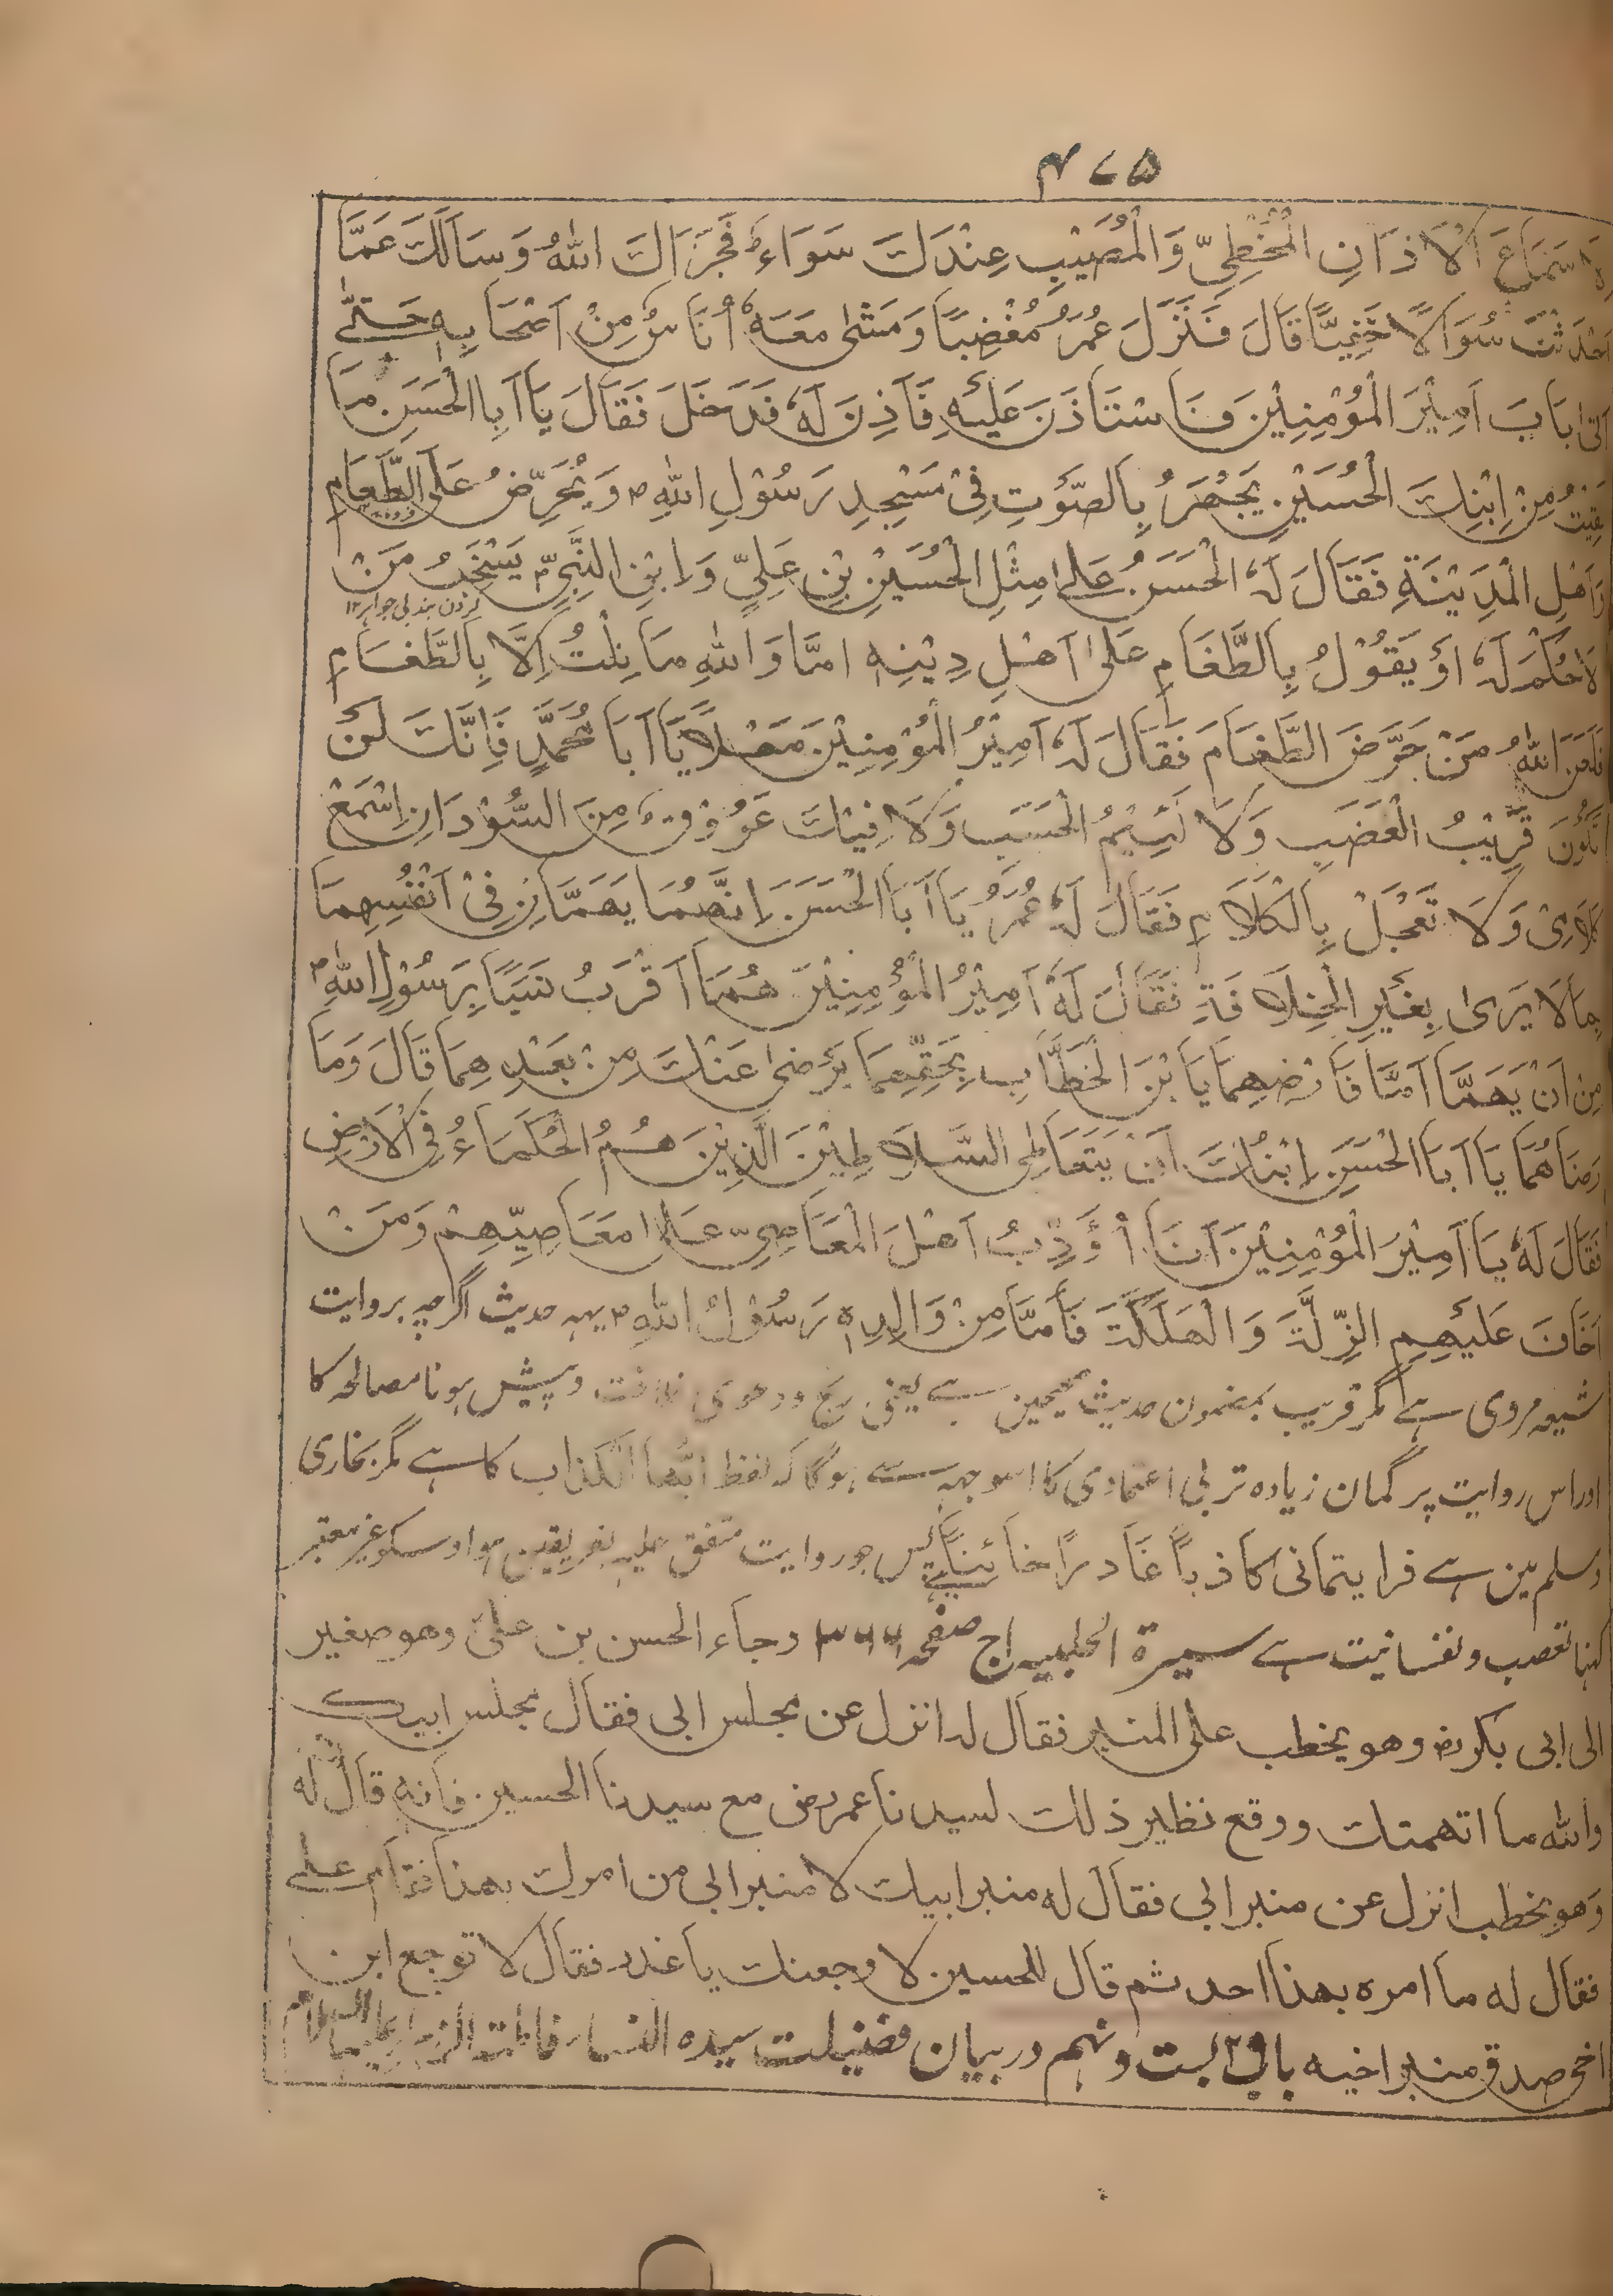 ۴۷۵
سَمَاعَ الْاٰذَانِ الْمُخْطِیِّ وَالْمُصِیْبِ عِنْدَكَ سَوَاءٌ فَجَزَاكَ اللهُ وَسَاَلَكَ عَمَّا
اَحْدَثْتَ سُوَالًا حَفِیًّا قَالَ فَنَزَلَ عُمَرُ مُغْضِبًا وَمَشٰی مَعَهٗ اُنَاسٌ مِنْ اَصْحَابِهٖ حَتّٰی
اَتٰی بَابَ اَمِیْرَ الْمُؤْمِنِیْنَ فَاسْتَاذَنَ عَلَیْهِ فَاَذِنَ لَهٗ فَدَخَلَ فَقَالَ یَا اَبَا الْحَسَنِ مَا
لَقِیْتُ مِنْ اِبْنِكَ الْحُسَیْنِ یَجْهَرُ بِالصَّوْتِ فِیْ مَسْجِدِ رَسُوْلِ اللهِ ص وَیُحَرِّضُ عَلَی الطَّغَامِ
وَاَهْلِ الْمَدِیْنَةِ فَقَالَ لَهٗ الْحَسَنُ عَلٰی مِثْلِ الْحُسَیْنِ بْنِ عَلِیٍّ وَابْنِ النَّبِیِّ ص یَسْتَخِبُّ مَنْ
لَاحُكْمَ لَهٗ اَوْ یَقُوْلُ بِالطَّغَامِ عَلٰی اَهْلِ دِیْنِهٖ اَمَّا وَاللهِ مَا نِلْتُ اِلَّا بِالطَّغَامِ
فَلَعَنَ اللهُ مَنْ حَرَّضَ الطَّغَامَ فَقَالَ لَهٗ اَمِیْرُ الْمُؤْمِنِیْنَ مَهْلًا یَا اَبَا مُحَمَّدٍ فَاِنَّكَ لَنْ
تَكُوْنَ قَرِیْبُ الْغَضَبِ وَلَا لَئِیْمُ الْحَسَبِ وَلَا فِیْكَ عُرُوْقٌ مِنَ السُّوْدَانِ اِسْمَعْ
كَلَامِیْ وَلَا تَعْجَلْ بِالْكَلَامِ فَقَالَ لَهٗ عُمَرُ یَا اَبَا الْحَسَنِ اِنَّهُمَا یَهَمَّانِ فِیْ اَنْفُسِهِمَا
بِمَا لَا یَرٰی بِغَیْرِ الْخِلَافَةِ فَقَالَ لَهٗ اَمِیْرُ الْمُؤْمِنِیْنَ هُمَا اَقْرَبُ نَسَبًا بِرَسُوْلِ اللهِ ص
مِنْ اَنْ یَهَمَّا اَمَّا فَارْضِهِمَا یَا بْنَ الْخَطَّابِ بِحَقِّهِمَا یَرْضٰی عَنْكَ مِنْ بَعْدِهِمَا قَالَ وَمَا
رِضَاهُمَا یَا اَبَا الْحَسَنِ اِبْنُكَ اَنْ یَتَعَاطَی السَّلَاطِیْنَ الَّذِیْنَ هُمُ الْحُكَمَاءُ فِی الْاَرْضِ
فَقَالَ لَهٗ یَا اَمِیْرُ الْمُؤْمِنِیْنَ اَنَا اُؤَدِّبُ اَهْلَ الْمَعَاصِیِّ عَلٰی مَعَاصِیِّهِمْ وَمَنْ
اَخَافَ عَلَیْهِمِ الزِّلَّةَ وَالْهَلَكَةَ فَاَمَّا مِنْ وَالِدِهٖ رَسُوْلُ اللهِ ص یہہ حدیث اگرچہ بروایت
شیعہ مروی ہے مگر قریب بمضمون حدیث صحیحین ہے یعنی رنج و دعوی خلافت و پیش ہونا مصالحہ کا
اور اس روایت پر گمان زیادہ تر بی اعتمادی کا اسوجہہ سے ہوگا کہ لفظ ایّها الکذاب کا ہے مگر بخاری
و مسلم مین ہے فرایتمانی کاذبًا غادرًا خائنًا پس جو روایت متفق علیہ بفریقین ہو اوسکو غیر معتبر
کہنا تعصب و نفسانیت ہے سیرة الحلبیه ج ا صفحه ۳۶۶ وجاء الحسن بن علی وهو صغیر
الی ابی بکر رض وهو یخطب علی المنبر فقال له انزل عن مجلس ابی فقال مجلس ابیك
والله ما اتهمتك ووقع نظیر ذلك لسیدنا عمر رض مع سیدنا الحسین فانه قال له
وهو یخطب انزل عن منبر ابی فقال له منبر ابیك لا منبر ابی من امرك بهذا فقام علی
فقال له ما امره بهذا احد ثم قال للحسین لا وجعنك یا غدر فقال لا توجع ابن
اخی صدق منبر ابیه باب بست و نہم در بیان فضیلت سیدہ النساء فاطمة الزہرا علیہا السلام